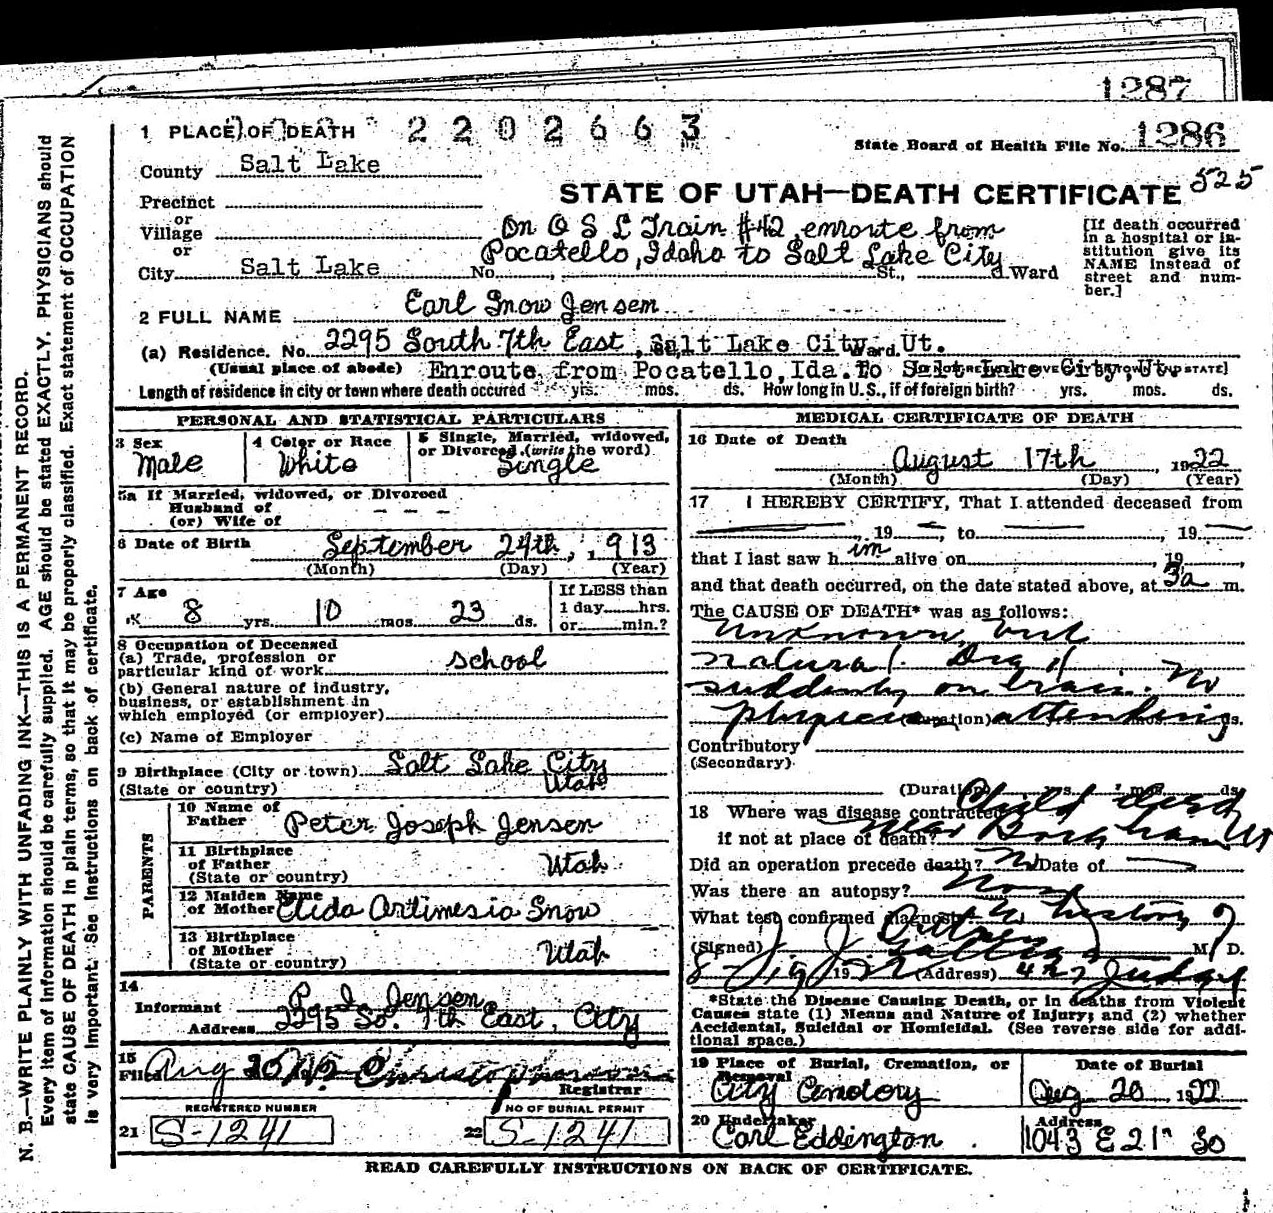 1287
1 PLACE OF DEATH 2202663
State Board of Health File No. 1286
County Salt Lake
525
STATE OF UTAH—DEATH CERTIFICATE
Precinct
or
Village
or
On O S L Train #42 enroute from
Pocatello, Idaho to Salt Lake City
City Salt Lake No. St., Ward
[If death occurred
in a hospital or in-
stitution give its
NAME instead of
street and num-
ber.]
2 FULL NAME Earl Snow Jensen
(a) Residence. No. 2295 South 7th East, Salt Lake City Ward. Ut.
(Usual place of abode) Enroute from Pocatello, Ida. to Salt Lake City, Ut. STATE]
Length of residence in city or town where death occured yrs. mos. ds. How long in U.S., if of foreign birth? yrs. mos. ds.
PERSONAL AND STATISTICAL PARTICULARS
3 Sex
Male
4 Color or Race
White
5 Single, Married, widowed,
or Divorced (write the word)
Single
5a If Married, widowed, or Divorced
Husband of
(or) Wife of – – –
6 Date of Birth September 24th, 1913
(Month) (Day) (Year)
7 Age
8 yrs. 10 mos 23 ds.
If LESS than
1 day hrs.
or min.?
8 Occupation of Deceased
(a) Trade, profession or
particular kind of work school
(b) General nature of industry,
business, or establishment in
which employed (or employer)
(c) Name of Employer
9 Birthplace (City or town) Salt Lake City
(State or country) Utah
PARENTS
10 Name of
Father Peter Joseph Jensen
11 Birthplace
of Father
(State or country) Utah
12 Maiden Name
of Mother Elida Artimesia Snow
13 Birthplace
of Mother
(State or country) Utah
14
Informant P J Jensen
Address 2295 So. 7th East, City
15
Filed Aug
Registrar
REGISTERED NUMBER
21 S-1241
NO OF BURIAL PERMIT
22 S-1241
MEDICAL CERTIFICATE OF DEATH
16 Date of Death
August 17th, 1922
(Month) (Day) (Year)
17 I HEREBY CERTIFY, That I attended deceased from
, 19 to , 19
that I last saw him alive on , 19 ,
and that death occurred, on the date stated above, at 3a m.
The CAUSE OF DEATH* was as follows:
Unknown, but
natural. Died
suddenly on train. No
physician (duration) attending ds.
Contributory
(Secondary)
(Duration) yrs. mos. ds.
18 Where was disease contracted Child died
if not at place of death? near Brigham Ut
Did an operation precede death? No Date of
Was there an autopsy? None
What test confirmed diagnosis? history of
(Signed) J. J. M. D.
8-19 1922 (Address) 427 Judge
*State the Disease Causing Death, or in deaths from Violent
Causes state (1) Means and Nature of Injury; and (2) whether
Accidental, Suicidal or Homicidal. (See reverse side for addi-
tional space.)
19 Place of Burial, Cremation, or
Removal
City Cemetery
Date of Burial
Aug. 20 1922
20 Undertaker
Carl Eddington
Address
1043 E 21st So
READ CAREFULLY INSTRUCTIONS ON BACK OF CERTIFICATE.
N. B.—WRITE PLAINLY WITH UNFADING INK—THIS IS A PERMANENT RECORD.
Every item of Information should be carefully supplied. AGE should be stated EXACTLY. PHYSICIANS should
state CAUSE OF DEATH in plain terms, so that it may be properly classified. Exact statement of OCCUPATION
is very Important. See Instructions on back of certificate.